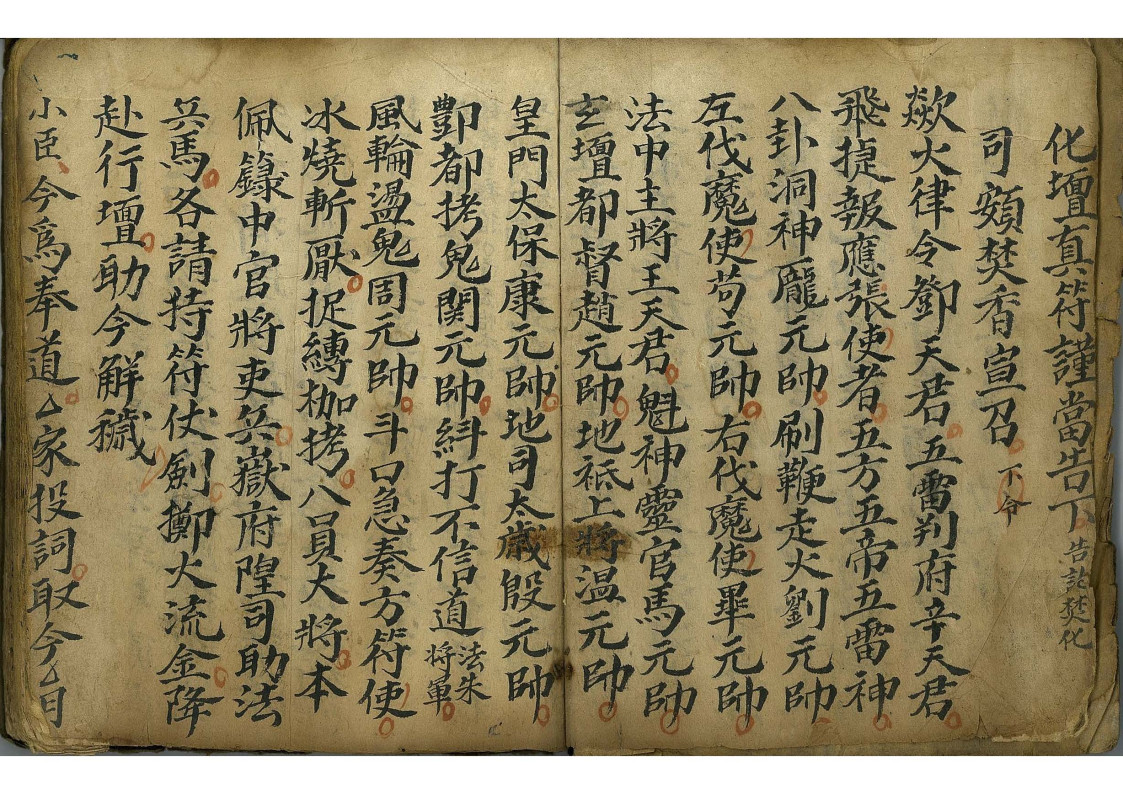 化壇真符謹當告下告訖焚化
司額焚香宣召下令
歘火律令鄧天君五雷判府辛天君
飛捷報應張使者五方五帝五雷神
八卦洞神龐元帥刷鞭走火劉元帥
左伐魔使苟元帥右伐魔使畢元帥
法中主將王天君魁神靈官馬元帥
玄壇都督趙元帥地祇上將温元帥
皇門太保康元帥地司太歲殷元帥
酆都拷鬼関元帥糾打不信道法朱將軍
風輪盪鬼周元帥斗口急奏方符使
冰燒斬厭捉縛枷拷八員大將本
佩籙中官將吏兵嶽府隍司助法
兵馬各請持符仗劍擲火流金降
赴行壇助令解穢
小臣今爲奉道厶家投詞取今厶月